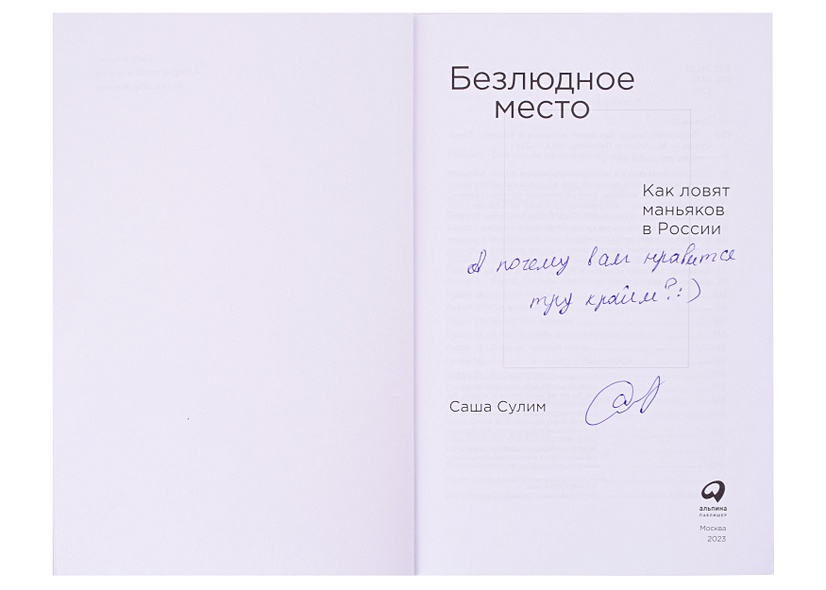 Безлюдное
место
Как ловят
маньяков
в России
А почему вам нравится
тру крайм?:)
Саша Сулим
альпина
ПАБЛИШЕР
Москва
2023